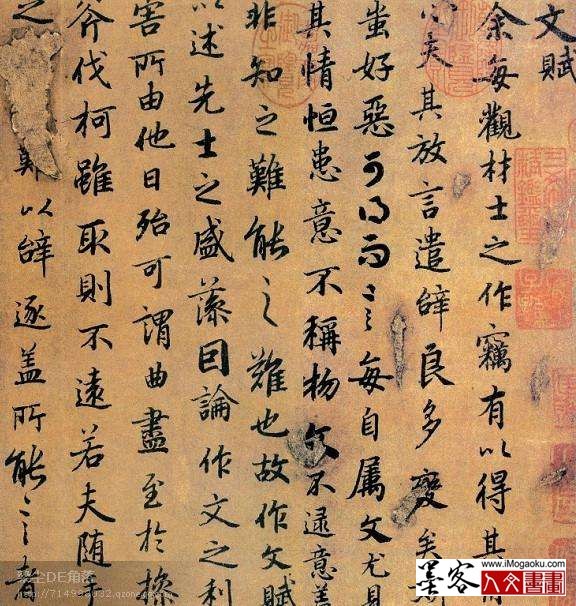 文賦
余每觀材士之作竊有以得其
心夫其放言遣辭良多變矣
蚩好惡可得而言每自属文尤見
其情恒患意不稱物文不逮意盖
非知之難能之難也故作文賦
以述先士之盛藻因論作文之利
害所由他日殆可謂曲盡至於操
斧伐柯雖取則不遠若夫隨手
之難以辭逐盖所能言者
墨客
www.iMogaoku.com
人文書畫
DE角落